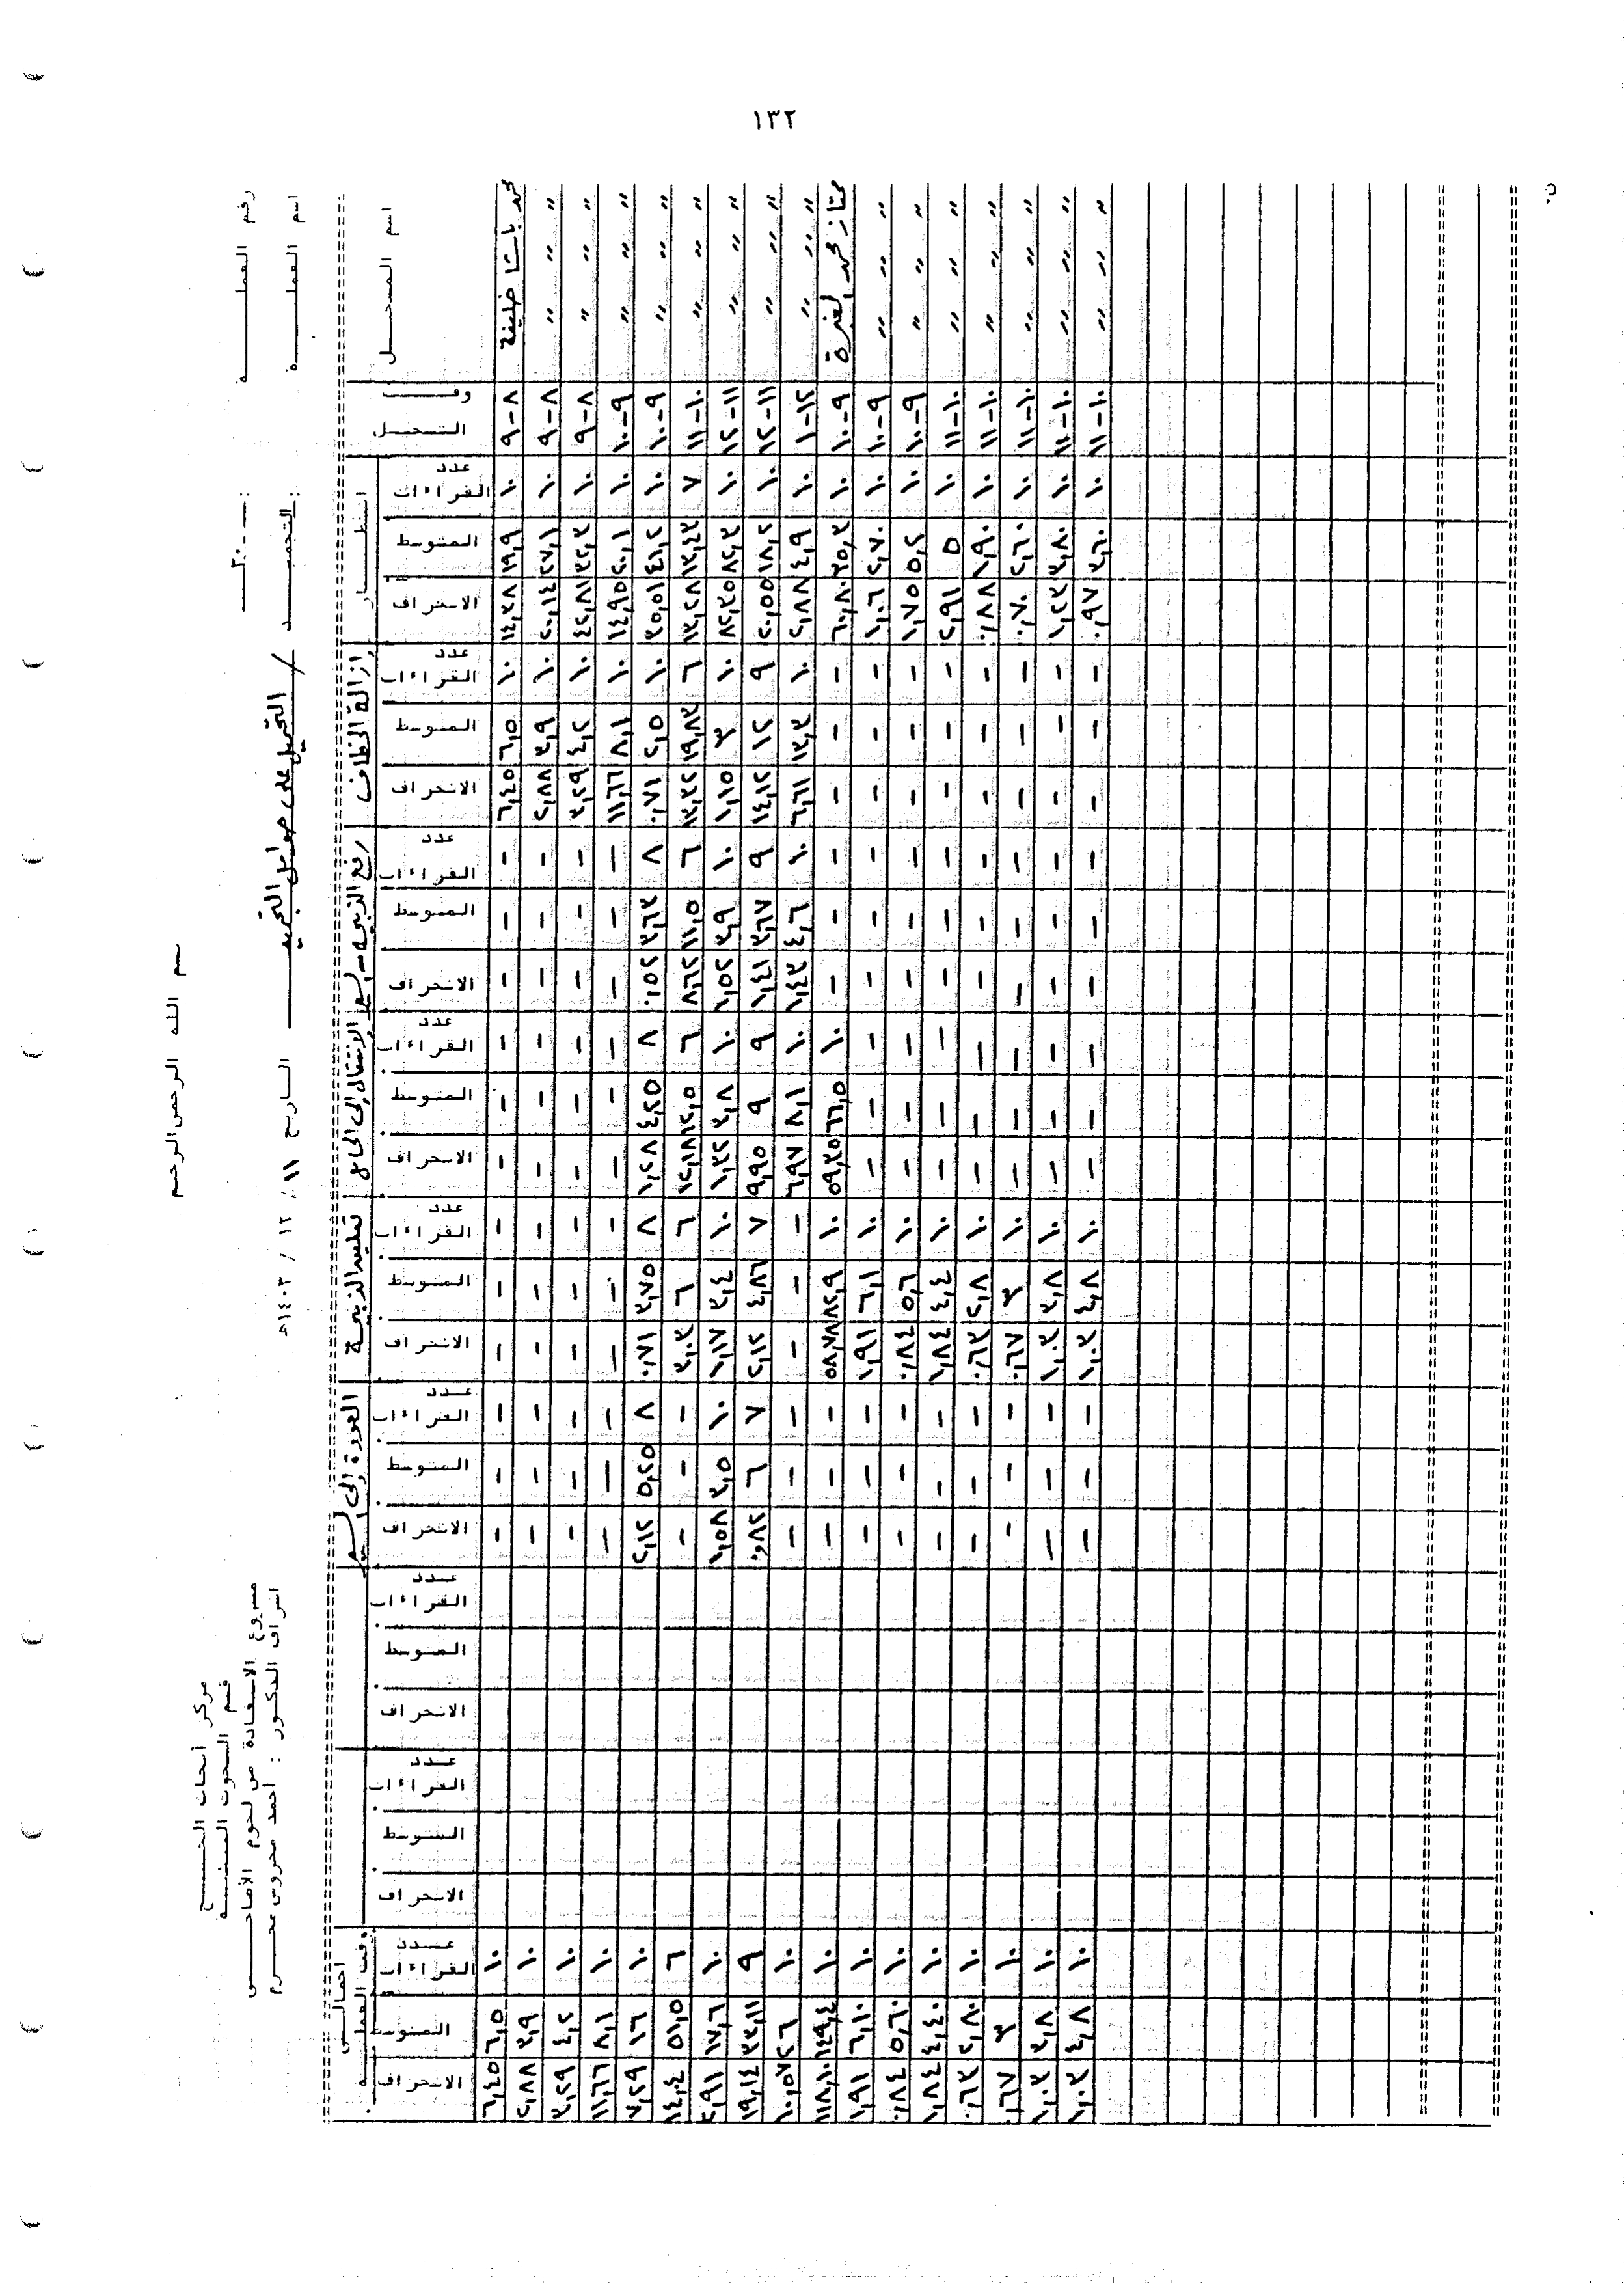 ١٣٢
بسم الله الرحمن الرحيم
مركز أبحاث الحج
قسم البحوث البيئية
مشروع الاستفادة من لحوم الأضاحي
اشراف الدكتور : أحمد محروس محرم
رقم العملية : ٣٠
اسم العملية : التجميد / التحميل على حوامل التجميد التاريخ ١١ / ١٢ / ١٤٠٣ه
اسم المسجل | وقت التسجيل | انتظار | ازالة الخطاف | رفع الذبيحه | الانتقال إلى الحامل | تعليق الذبيحة | العودة إلى السير | اجمالي وقت العملية
عدد القراءات | المتوسط | الانحراف | عدد القراءات | المتوسط | الانحراف | عدد القراءات | المتوسط | الانحراف | عدد القراءات | المتوسط | الانحراف | عدد القراءات | المتوسط | الانحراف | عدد القراءات | المتوسط | الانحراف | عدد القراءات | المتوسط | الانحراف | عدد القراءات | المتوسط | الانحراف | عدد القراءات | المتوسط | الانحراف
محمد باشا خليفة | ٨-٩ | ١٠ | ١٩,٩ | ١٤,٣٨ | ١٠ | ٦,٥ | ٦,٤٥ | - | - | - | - | - | - | - | - | - | - | - | - | ١٠ | ٦,٥ | ٦,٤٥
" " " | ٨-٩ | ١٠ | ٢٧,١ | ٢٠,١٤ | ١٠ | ٣,٩ | ٢,٨٨ | - | - | - | - | - | - | - | - | - | - | - | - | ١٠ | ٣,٩ | ٢,٨٨
" " " | ٨-٩ | ١٠ | ٣٢,٣ | ٤٢,٨١ | ١٠ | ٤,٢ | ٣,٢٩ | - | - | - | - | - | - | - | - | - | - | - | - | ١٠ | ٤,٢ | ٣,٢٩
" " " | ٩-١٠ | ١٠ | ٢٠,١ | ١٤,٩٥ | ١٠ | ٨,١ | ١١,٦٦ | - | - | - | - | - | - | - | - | - | - | - | - | ١٠ | ٨,١ | ١١,٦٦
" " " | ٩-١٠ | ١٠ | ٤١,٢ | ٣٥,٥١ | ١٠ | ٢,٥ | ٠,٧١ | ٨ | ٣,٦٣ | ٠,٥٢ | ٨ | ٤,٢٥ | ١,٢٨ | ٨ | ٣,٧٥ | ٠,٧١ | ٨ | ٥,٢٥ | ٢,١٢ | ١٠ | ١٦ | ٧,٢٩
" " " | ١٠-١١ | ٧ | ١٣,٤٣ | ١٣,٢٨ | ٦ | ١٩,٨٣ | ١٣,٣٢ | ٦ | ١١,٥ | ٨,٦٢ | ٦ | ١٢,٥ | ١٢,١٨ | ٦ | ٦ | ٣,٠٣ | - | - | - | ٦ | ٥١,٥ | ١٤,٤
" " " | ١١-١٢ | ١٠ | ٨٢,٣ | ٨٢,٣٥ | ١٠ | ٣ | ١,١٥ | ١٠ | ٣,٩ | ١,٥٢ | ١٠ | ٣,٨ | ١,٣٢ | ١٠ | ٣,٤ | ١,١٧ | ١٠ | ٣,٥ | ١,٥٨ | ١٠ | ١٧,٦ | ٢,٩١
" " " | ١١-١٢ | ١٠ | ١٨,٢ | ٢٠,٥٥ | ٩ | ١٢ | ١٤,١٢ | ٩ | ٣,٦٧ | ١,٤١ | ٩ | ٩ | ٩,٩٥ | ٧ | ٤,٨٦ | ٢,١٢ | ٧ | ٦ | ٠,٨٢ | ٩ | ٣٣,١١ | ١٩,١٤
" " " | ١٢-١ | ١٠ | ٤,٩ | ٢,٨٨ | ١٠ | ١٣,٣ | ٦,٦١ | ١٠ | ٤,٦ | ١,٤٣ | ١٠ | ٨,١ | ٦,٩٧ | - | - | - | - | - | - | ١٠ | ٢٦ | ١٠,٥٧
ممتاز محمد الغبرة | ٩-١٠ | ١٠ | ٣٥,٣ | ٦٠,٨٠ | - | - | - | - | - | - | ١٠ | ٦٦,٥ | ٥٩,٣٥ | ١٠ | ٨٢,٩ | ٥٨,٧٨ | - | - | - | ١٠ | ١٤٩,٤ | ١١٨,١٠
" " " | ٩-١٠ | ١٠ | ٢,٧٠ | ١,٠٦ | - | - | - | - | - | - | - | - | - | ١٠ | ٦,١ | ١,٩١ | - | - | - | ١٠ | ٦,١٠ | ١,٩١
" " " | ٩-١٠ | ١٠ | ٥,٢ | ١,٧٥ | - | - | - | - | - | - | - | - | - | ١٠ | ٥,٦ | ٠,٨٤ | - | - | - | ١٠ | ٥,٦٠ | ٠,٨٤
" " " | ١٠-١١ | ١٠ | ٥ | ٢,٩١ | - | - | - | - | - | - | - | - | - | ١٠ | ٤,٤ | ١,٨٤ | - | - | - | ١٠ | ٤,٤٠ | ١,٨٤
" " " | ١٠-١١ | ١٠ | ١,٩٠ | ٠,٨٨ | - | - | - | - | - | - | - | - | - | ١٠ | ٢,٨ | ٠,٦٣ | - | - | - | ١٠ | ٢,٨٠ | ٠,٦٣
" " " | ١٠-١١ | ١٠ | ٢,٦٠ | ٠,٧٠ | - | - | - | - | - | - | - | - | - | ١٠ | ٣ | ٠,٦٧ | - | - | - | ١٠ | ٣ | ٠,٦٧
" " " | ١٠-١١ | ١٠ | ٣,٨٠ | ١,٢٣ | - | - | - | - | - | - | - | - | - | ١٠ | ٣,٨ | ١,٠٣ | - | - | - | ١٠ | ٣,٨ | ١,٠٣
" " " | ١٠-١١ | ١٠ | ٣,٦٠ | ٠,٩٧ | - | - | - | - | - | - | - | - | - | ١٠ | ٤,٨ | ١,٠٣ | - | - | - | ١٠ | ٤,٨ | ١,٠٣